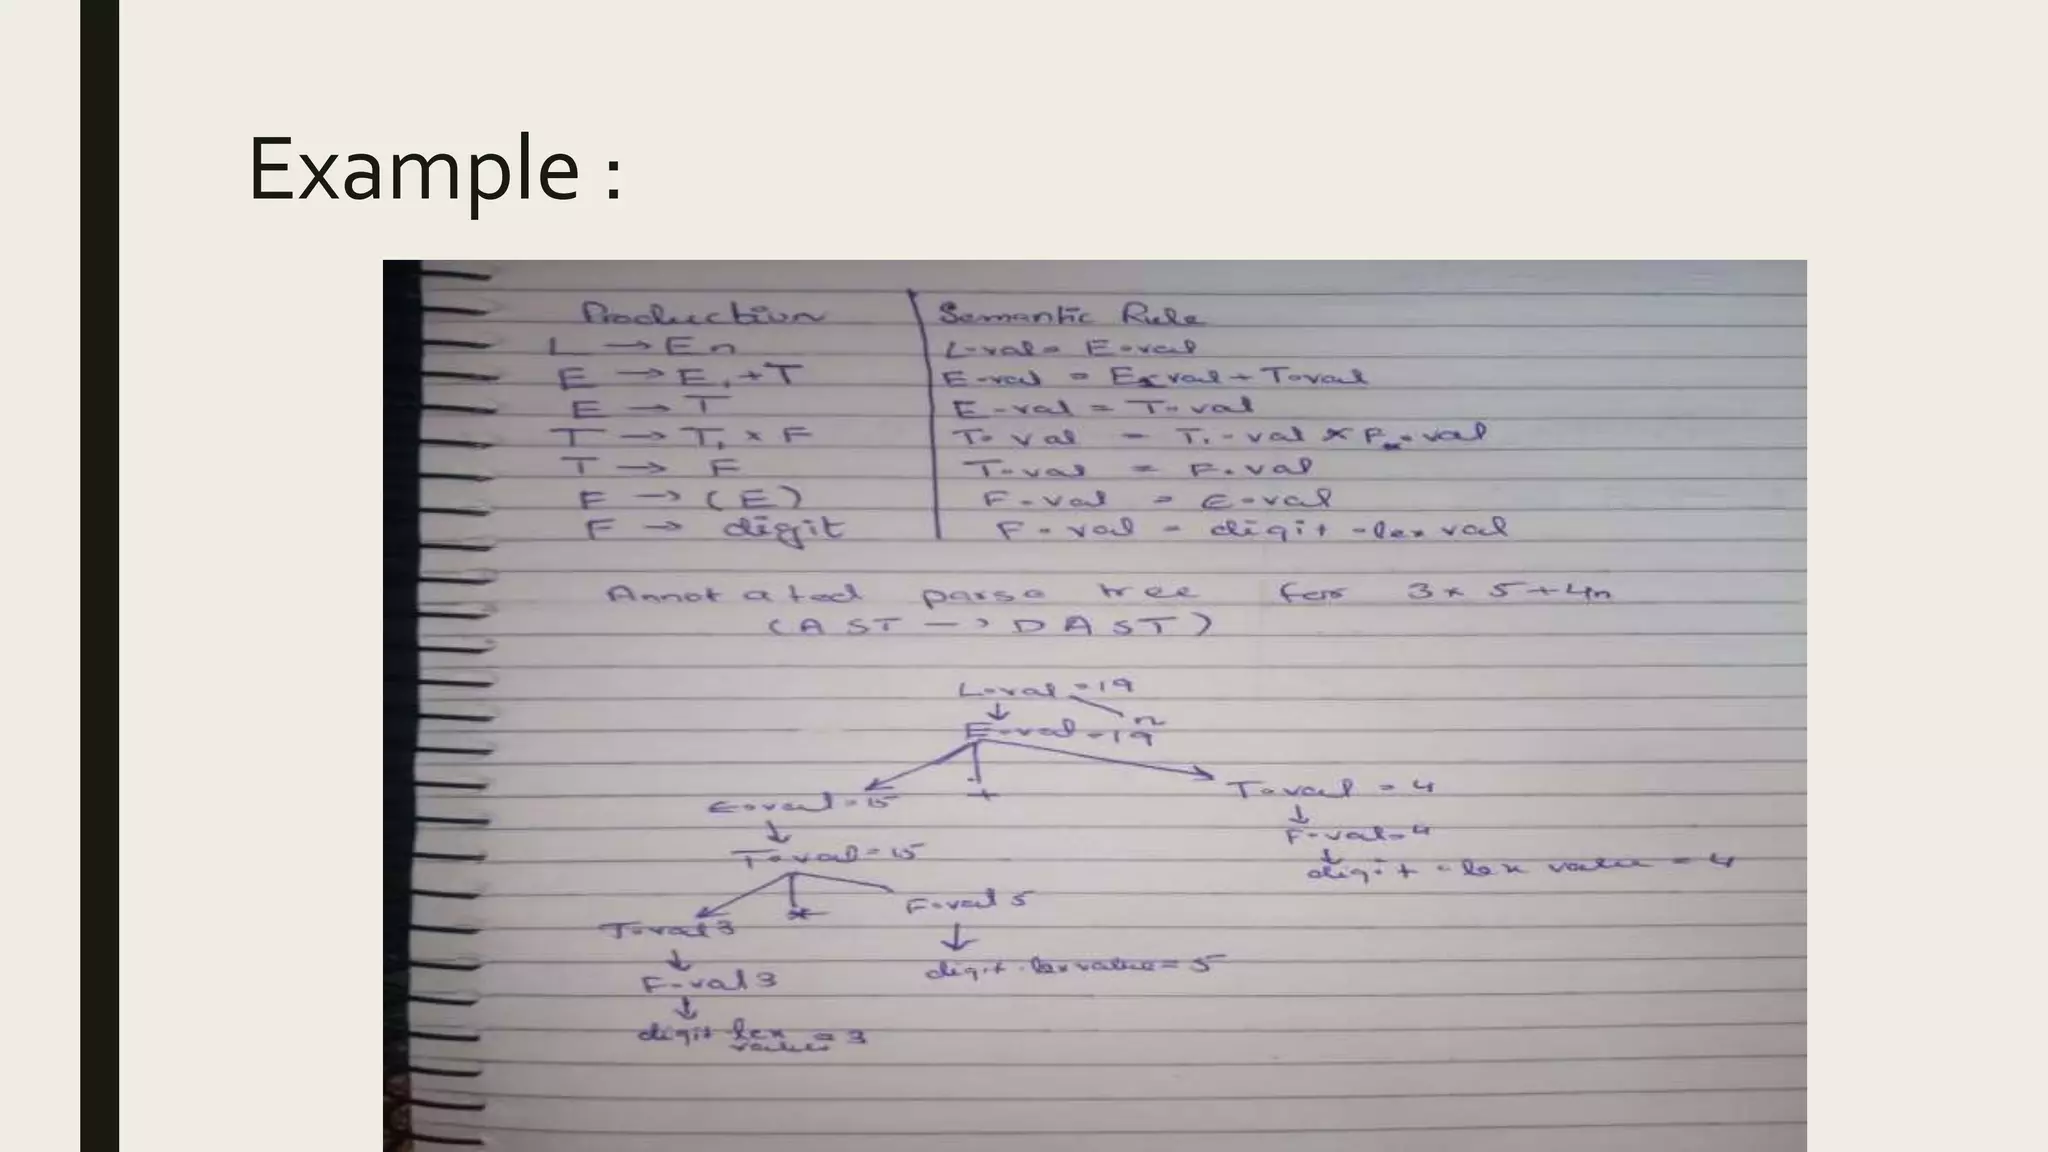 Example :
Production Semantic Rule
L → En L.val = E.val
E → E₁ + T E.val = E₁.val + T.val
E → T E.val = T.val
T → T₁ × F T.val = T₁.val × F.val
T → F T.val = F.val
F → (E) F.val = E.val
F → digit F.val = digit.lex val
Annotated parse tree for 3 * 5 + 4n
(AST → DAST)
L.val = 19
n
E.val = 19
E.val = 15 + T.val = 4
F.val = 4
T.val = 15
digit.lex value = 4
T.val 3 * F.val 5
F.val 3 digit.lex value = 5
digit lex value = 3